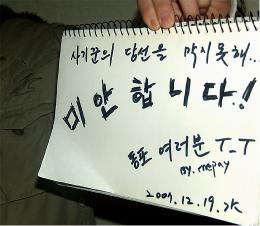 사기꾼의 당선을 막지못해...
미안합니다!
동포 여러분 T_T
By. mepay
2007. 12. 19. 水